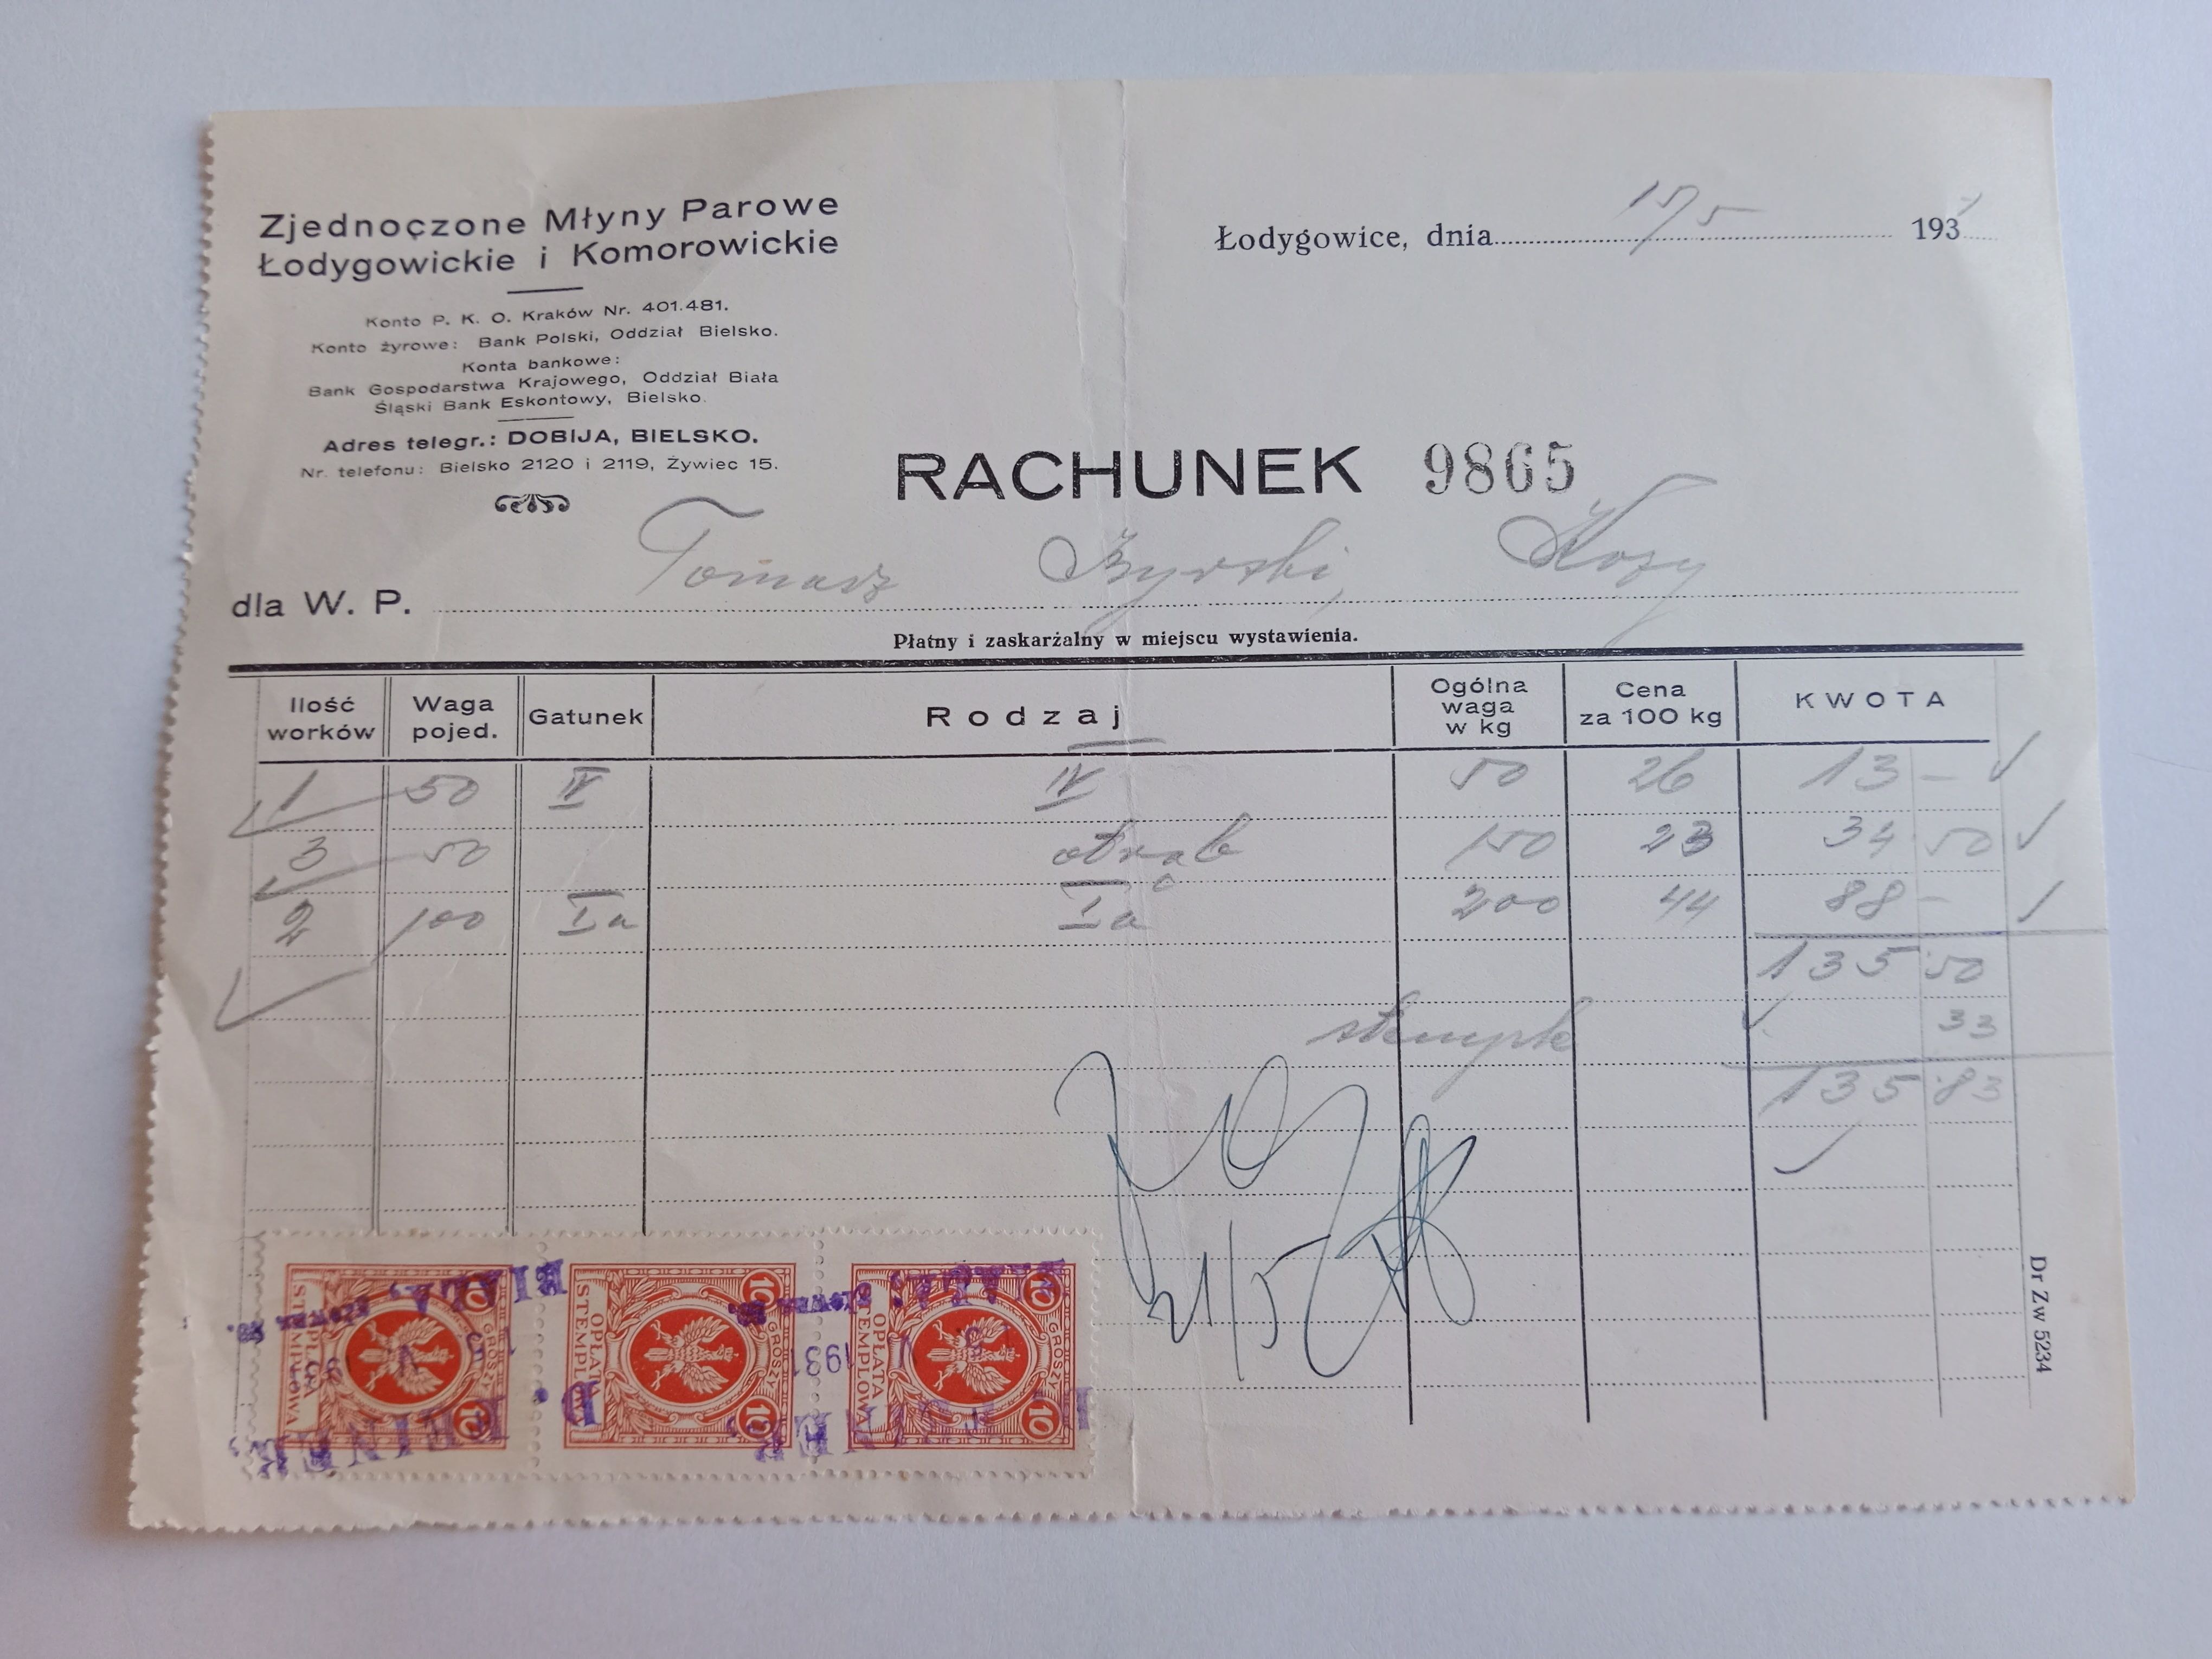 Zjednoczone Młyny Parowe
Łodygowickie i Komorowickie
Konto P. K. O. Kraków Nr. 401.481.
Konto żyrowe: Bank Polski, Oddział Bielsko.
Konta bankowe:
Bank Gospodarstwa Krajowego, Oddział Biała
Śląski Bank Eskontowy, Bielsko.
Adres telegr.: DOBIJA, BIELSKO.
Nr. telefonu: Bielsko 2120 i 2119, Żywiec 15.
Łodygowice, dnia 15/5 1931
RACHUNEK 9865
dla W. P. Tomasz Żyrski, Kozy
Płatny i zaskarżalny w miejscu wystawienia.
Ilość worków Waga pojed. Gatunek Rodzaj Ogólna waga w kg Cena za 100 kg KWOTA
1 50 IV IV 50 26 13 –
3 50 otrąb 150 23 34 50
2 100 Ia Ia 200 44 88 –
135 50
stemple 33
135 83
21/5
10 GROSZY 10
OPŁATA STEMPLOWA
10 GROSZY 10
OPŁATA STEMPLOWA
10 GROSZY 10
OPŁATA STEMPLOWA
1931
Dr Zw 5234